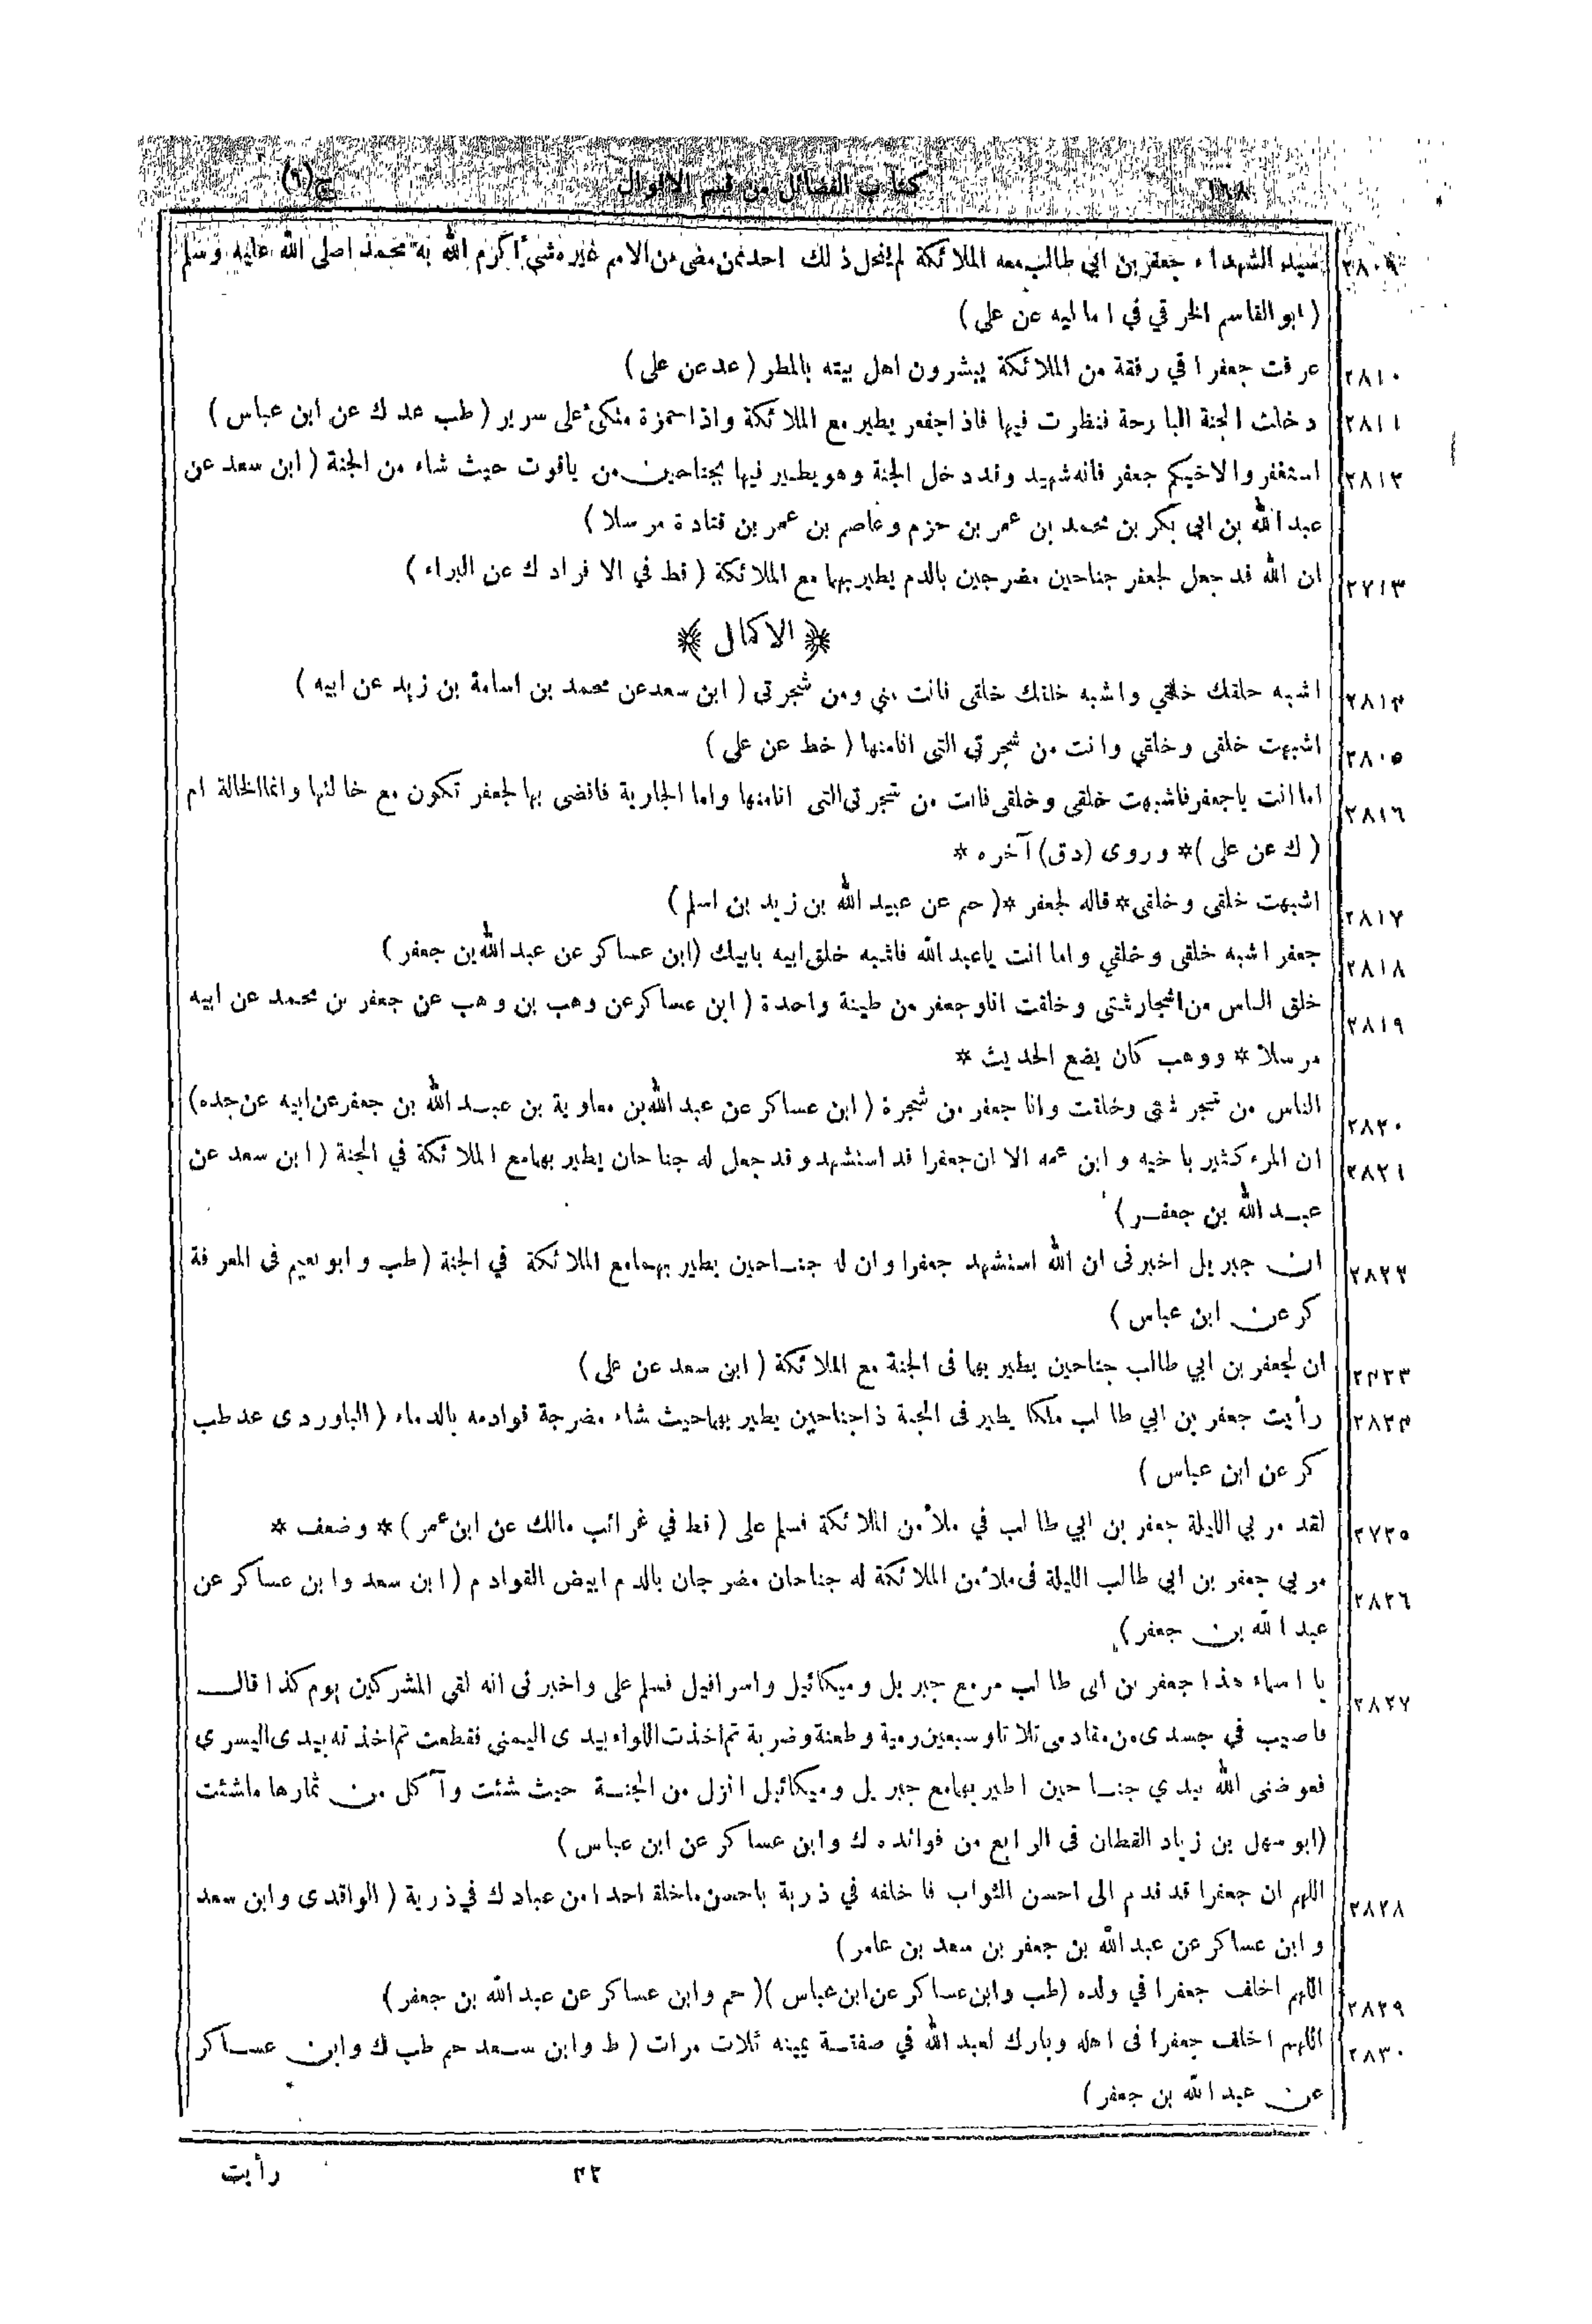 ١٦٨ كتاب الفضائل من قسم الاقوال ج(٦)
٢٨٠٩ سيد الشهداء جعفر بن ابي طالب معه الملائكة لم ينحل ذلك احد ممن مضى من الامم غيره شئ أكرم الله به محمدا صلى الله عليه وسلم
(ابو القاسم الخرقي في اماليه عن علي)
٢٨١٠ عرفت جعفرا في رفقة من الملائكة يبشرون اهل بيته بالمطر (عد عن علي)
٢٨١١ دخلت الجنة البارحة فنظرت فيها فاذا جعفر يطير مع الملائكة واذا حمزة متكئ على سرير (طب عد ك عن ابن عباس)
٢٨١٢ استغفروا لاخيكم جعفر فانه شهيد وقد دخل الجنة وهو يطير فيها بجناحين من ياقوت حيث شاء من الجنة (ابن سعد عن
عبد الله بن ابي بكر بن محمد بن عمر بن حزم وعاصم بن عمر بن قتادة مرسلا)
٢٧١٣ ان الله قد جعل لجعفر جناحين مضرجين بالدم يطير بهما مع الملائكة (قط في الافراد ك عن البراء)
﴿الاكمال﴾
٢٨١٤ اشبه خلقك خلقي واشبه خلقك خلقى فانت مني ومن شجرتى (ابن سعد عن محمد بن اسامة بن زيد عن ابيه)
٢٨٠٥ اشبهت خلقى وخلقي وانت من شجرتي التى انا منها (خط عن علي)
٢٨١٦ اما انت يا جعفر فاشبهت خلقى وخلقى فانت من شجرتى التى انا منها واما الجارية فاقضى بها لجعفر تكون مع خالتها وانما الخالة ام
(ك عن علي)* وروى (دق) آخره *
٢٨١٧ اشبهت خلقى وخلقى* قاله لجعفر *(حم عن عبيد الله بن زيد بن اسلم)
٢٨١٨ جعفر اشبه خلقى وخلقي واما انت يا عبد الله فاشبه خلق ابيه بابيك (ابن عساكر عن عبد الله بن جعفر)
٢٨١٩ خلق الناس من اشجار شتى وخلقت انا وجعفر من طينة واحدة (ابن عساكر عن وهب بن وهب عن جعفر بن محمد عن ابيه
مرسلا * ووهب كان يضع الحديث *
٢٨٢٠ الناس من شجر شتى وخلقت وانا جعفر من شجرة (ابن عساكر عن عبد الله بن معاوية بن عبد الله بن جعفر عن ابيه عن جده)
٢٨٢١ ان المرء كثير باخيه وابن عمه الا ان جعفرا قد استشهد وقد جعل له جناحان يطير بهما مع الملائكة في الجنة (ابن سعد عن
عبد الله بن جعفر)
٢٨٢٢ ان جبريل اخبرنى ان الله استشهد جعفرا وان له جناحين يطير بهما مع الملائكة في الجنة (طب وابو نعيم فى المعرفة
كر عن ابن عباس)
٢٨٢٣ ان لجعفر بن ابي طالب جناحين يطير بهما فى الجنة مع الملائكة (ابن سعد عن علي)
٢٨٢٤ رأيت جعفر بن ابي طالب ملكا يطير فى الجنة ذا جناحين يطير بهما حيث شاء مضرجة قوادمه بالدماء (الباوردى عد طب
كر عن ابن عباس)
٢٧٢٥ لقد مر بي الليلة جعفر بن ابي طالب في ملأ من الملائكة فسلم على (قط في غرائب مالك عن ابن عمر)* وضعف *
٢٨٢٦ مر بي جعفر بن ابي طالب الليلة فى ملأ من الملائكة له جناحان مضرجان بالدم ابيض القوادم (ابن سعد وابن عساكر عن
عبد الله بن جعفر)
٢٨٢٧ يا اسماء هذا جعفر بن ابى طالب مر مع جبريل وميكائيل واسرافيل فسلم على واخبرنى انه لقى المشركين يوم كذا قال
فاصيب في جسدى من مقادمى ثلاثا وسبعين رمية وطعنة وضربة ثم اخذت اللواء بيدى اليمنى فقطعت ثم اخذته بيدى اليسرى
فعوضنى الله بيدي جناحين اطير بهما مع جبريل وميكائيل انزل من الجنة حيث شئت وآكل من ثمارها ماشئت
(ابو سهل بن زياد القطان فى الرابع من فوائده ك وابن عساكر عن ابن عباس)
٢٨٢٨ اللهم ان جعفرا قد قدم الى احسن الثواب فاخلفه في ذرية باحسن ماخلف احدا من عبادك في ذرية (الواقدى وابن سعد
وابن عساكر عن عبد الله بن جعفر بن سعد بن عامر)
٢٨٢٩ اللهم اخلف جعفرا في ولده (طب وابن عساكر عن ابن عباس)(حم وابن عساكر عن عبد الله بن جعفر)
٢٨٣٠ اللهم اخلف جعفرا فى اهله وبارك لعبد الله في صفقة يمينه ثلاث مرات (ط وابن سعد حم طب ك وابن عساكر
عن عبد الله بن جعفر)
٢٢ رأيت